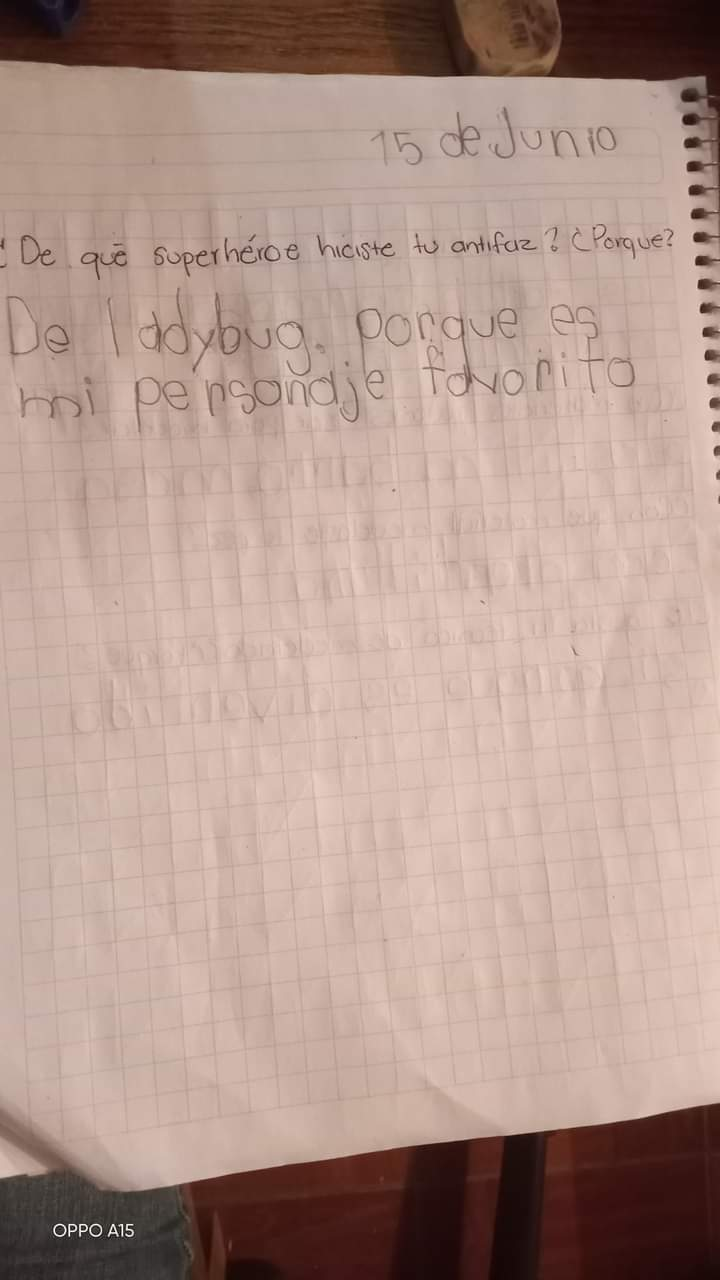 15 de Junio
¿De qué superhéroe hiciste tu antifaz? ¿Porque?
De ladybug. porque es
mi personaje favorito
OPPO A15